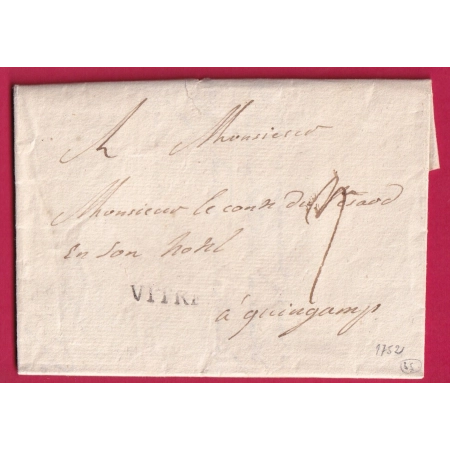 A Monsieur
Monsieur le conte du
en son hotel
VITRE
à guingamp
1752